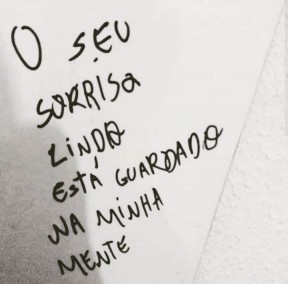 O SEU
SORRISO
LINDO
ESTÁ GUARDADO
NA MINHA
MENTE